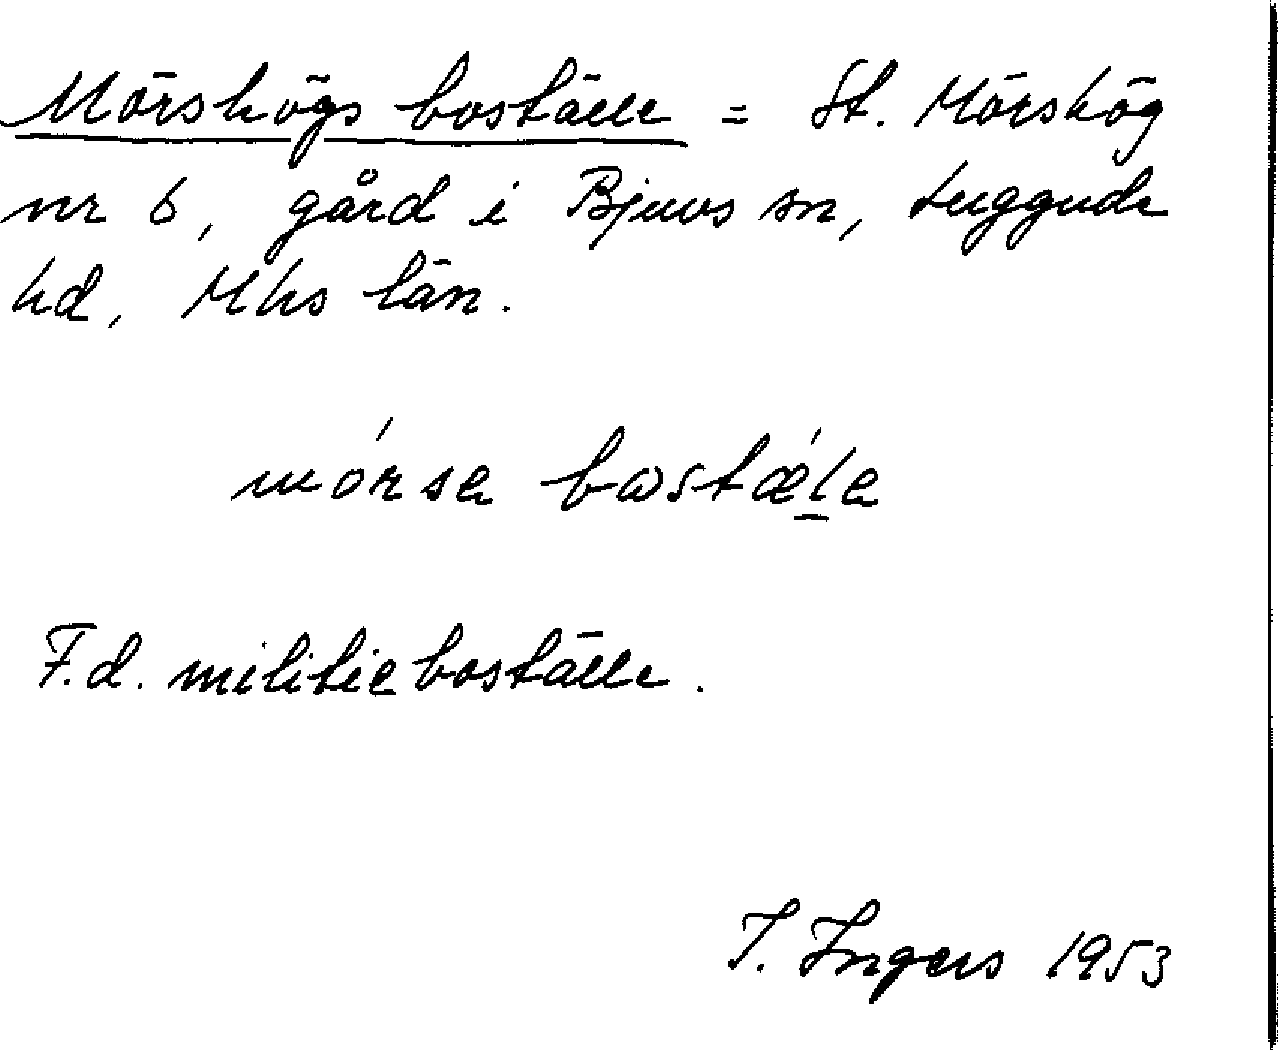 Mörshögs boställe = St. Mörshög
nr 6, gård i Bjuvs sn, Luggude
hd, Mhs län.
mórse bωstǽl̲e
F.d. militieboställe.
I. Ingers 1953